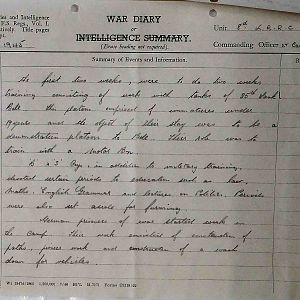 ries and Intelligence
F.S. Regs., Vol. I.
tively. Title pages
pt.
1945
WAR DIARY
OR
INTELLIGENCE SUMMARY.
(Erase heading not required).
Unit
Commanding Officer
Summary of Events and Information.
The first two weeks were to do two weeks
training consisting of work with tanks of 85th Tank
Bde. The platoon comprised of immatures under
19 years and the object of their stay was to be a
demonstration platoon to Bde. Their role was to
train with a Motor Bn.
Coys. in addition to military training,
devoted certain periods to education such as Law,
Maths, English Grammar and lectures on Politics. Periods
were also set aside for farming.
German prisoners of war started work on
the Camp. Their work consisted of construction of
paths, general work and construction of a wash
down for vehicles.